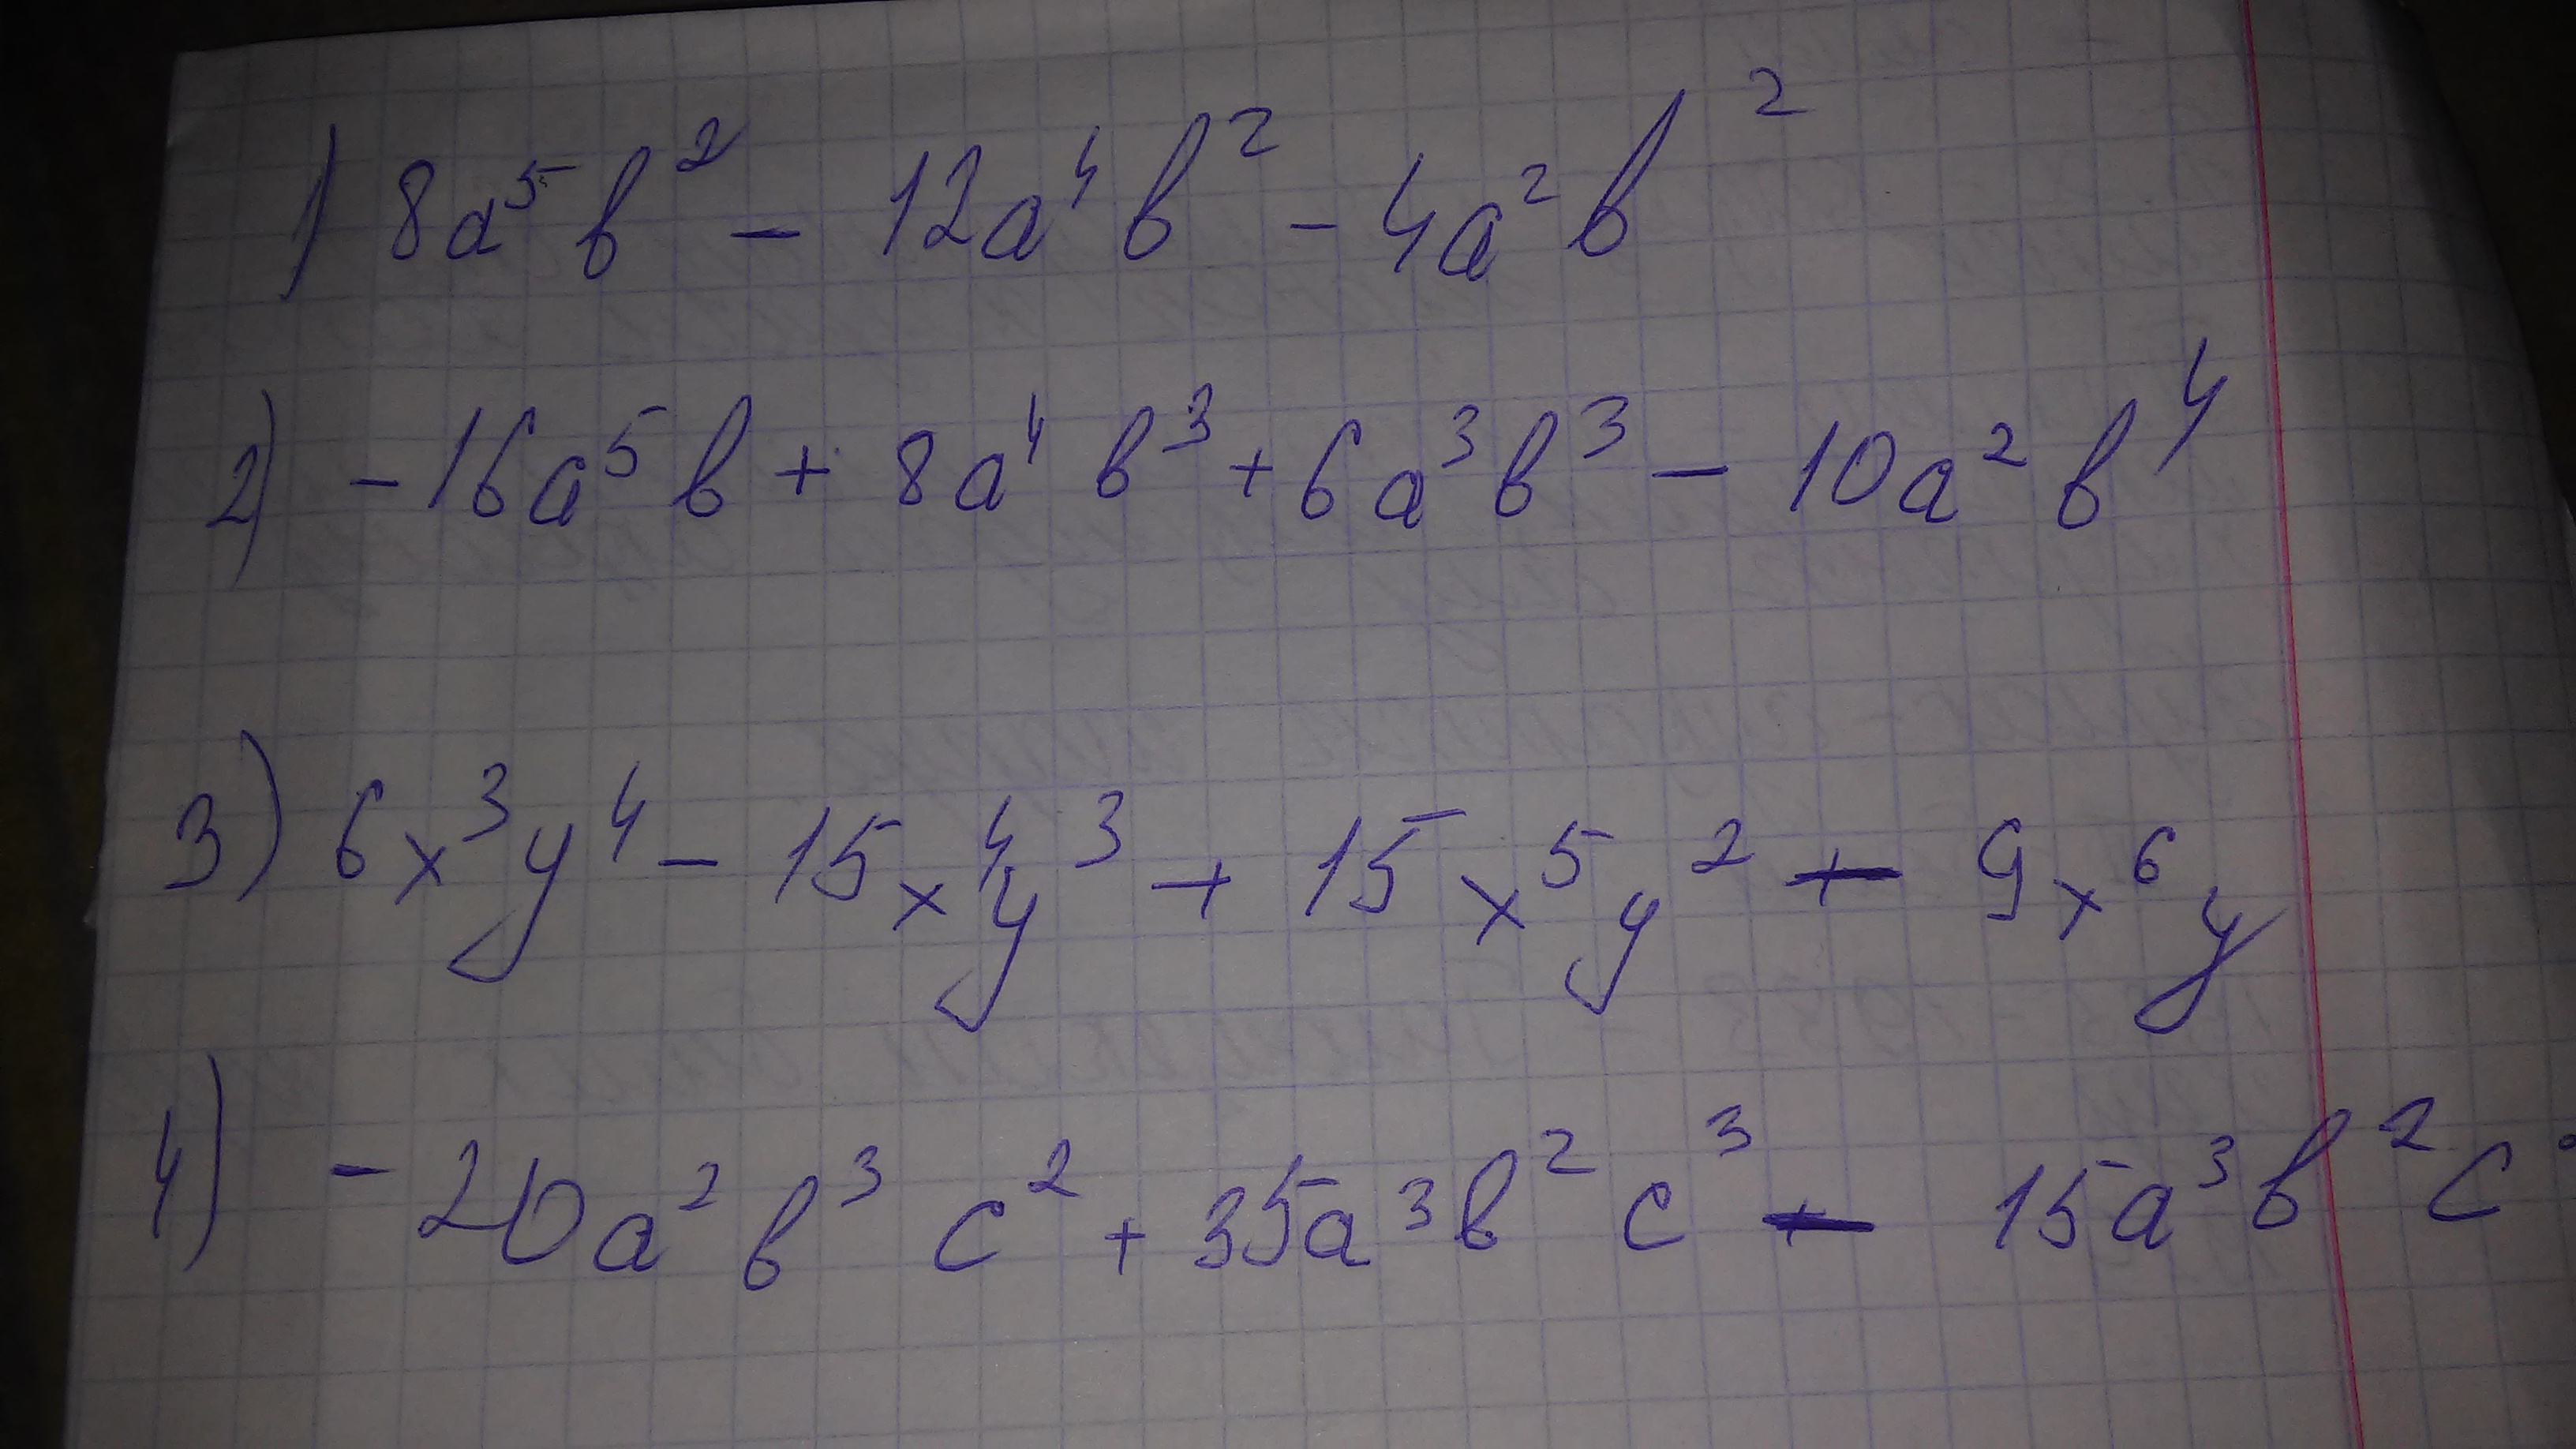 1) 8a⁵b² - 12a⁴b² - 4a²b²
2) -16a⁵b + 8a⁴b³ + 6a³b³ - 10a²b⁴
3) 6x³y⁴ - 15x⁴y³ + 15x⁵y² - 9x⁶y
4) -20a²b³c² + 35a³b²c³ - 15a³b²c